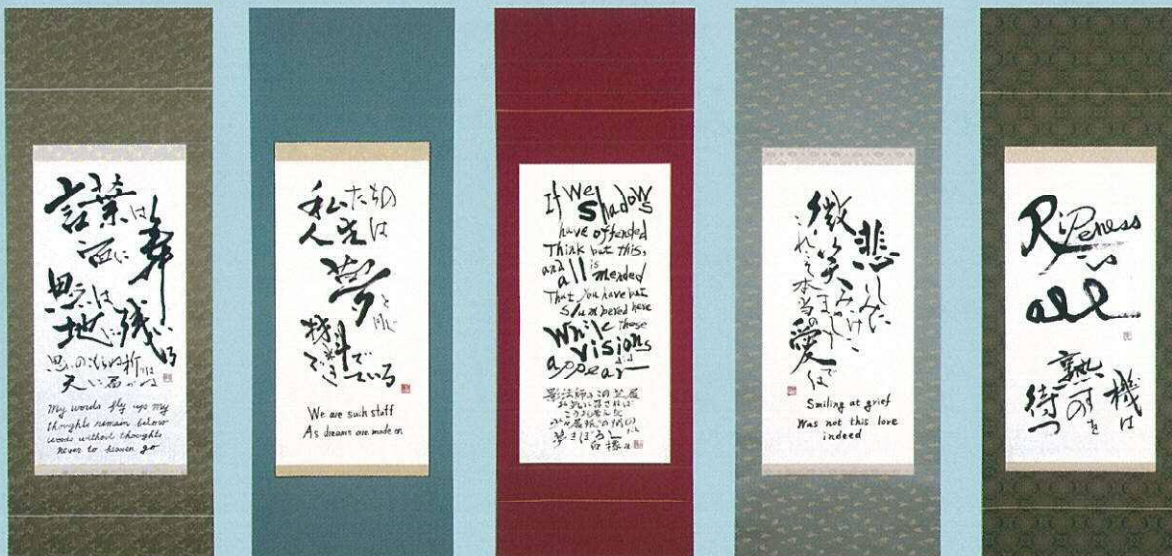 言葉は
宙に舞い
思いは
地に残る
思いのこもらぬ祈りは
天に届かぬ
My words fly up my
thoughts remain below
words without thoughts
never to heaven go
私たちの
人生は
夢と同じ
材料で
できている
We are such stuff
As dreams are made on
If we
shadows
have offended
Think but this,
and all is mended
That you have but
slumbered here
While these
visions
appear
影法師のこの芝居
悲しみに
微笑みかけ
これこそ本当の愛では
Smiling at grief
Was not this love
indeed
Ripeness
is
all
機は
熟すのを
待つ